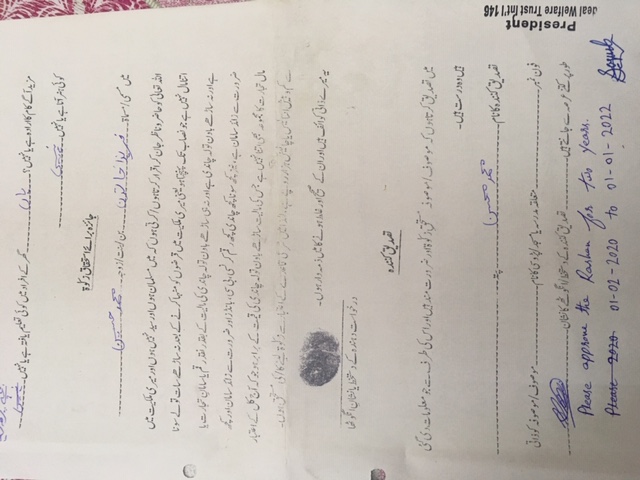 مزید آگے کام کا ارادہ ہے یا نہیں؟ ہاں گھر کے افراد میں کوئی تعلیم یافتہ ہے یا نہیں۔ نہیں
کوئی ہنر آتا ہے یا نہیں۔ نہیں
جائزہ برائے استحقاق زکوٰۃ
میں مسمی/مسماۃ فریدا خاتون بن/بنت/زوجہ محمد حسین
اللہ تعالی کو حاضر و ناظر جان کر اقرار کرتا ہوں/کرتی ہوں کہ میں مسلمان ہوں اور سید نہیں ہوں اور میری ملکیت میں
اتنا مال نہیں ہے جو نصاب تک پہنچتا ہو یعنی میری ملکیت میں قرضوں کو منہا کرنے کے بعد نہ ساڑھے سات تولے سونا
ہے اور نہ ساڑھے باون تولہ چاندی ہے اور نہ ہی ساڑھے باون تولہ چاندی کی مالیت کے بقدر نقد رقم یا سامان تجارت یا
ضرورت سے زائد سامان ہے، نیز کچھ سونا کچھ چاندی کچھ رقم کرنسی، بی سی، بانڈز اور ضرورت سے زائد سامان اور کچھ
مال تجارت کا مجموعہ بھی اتنا نہیں ہے جس کی مالیت ساڑھے باون تولہ چاندی کی قیمت کے برابر ہو جو کہ آج کل کے اعتبار
سے کم و بیش یا چالیس ہزار روپے ہے، لہٰذا میں شرعی قاعدے کے اعتبار سے زکوٰۃ لینے کا/کی مستحق ہوں۔
یہ میرے ذاتی کوائف ہیں اور ان کے صحیح اور غلط ہونے کا میں ذمہ دار ہوں۔
درخواست دہندہ کے دستخط یا نشان انگوٹھا
تصدیق کنندہ
میں تصدیق کرتا ہوں کہ موصوف/موصوفہ مستحق زکوٰۃ اور ضرورت مند ہیں اور اس کی طرف سے جو معلومات دی گئی
ہیں وہ درست ہیں۔
تصدیق کنندہ کا نام محمد محسن پتہ
فون نمبر متعلقہ مدرسہ یا مسجد/پڑوسی کا نام موصوف/موصوفہ کو ذاتی
طور پر کتنے عرصہ سے جانتے ہیں تصدیق کنندہ کے دستخط/انگوٹھے کا نشان
Please approve the Rashan for two years.
Please 2020 01-02-2020 to 01-01-2022
President
Jeal Welfare Trust Int'l 146